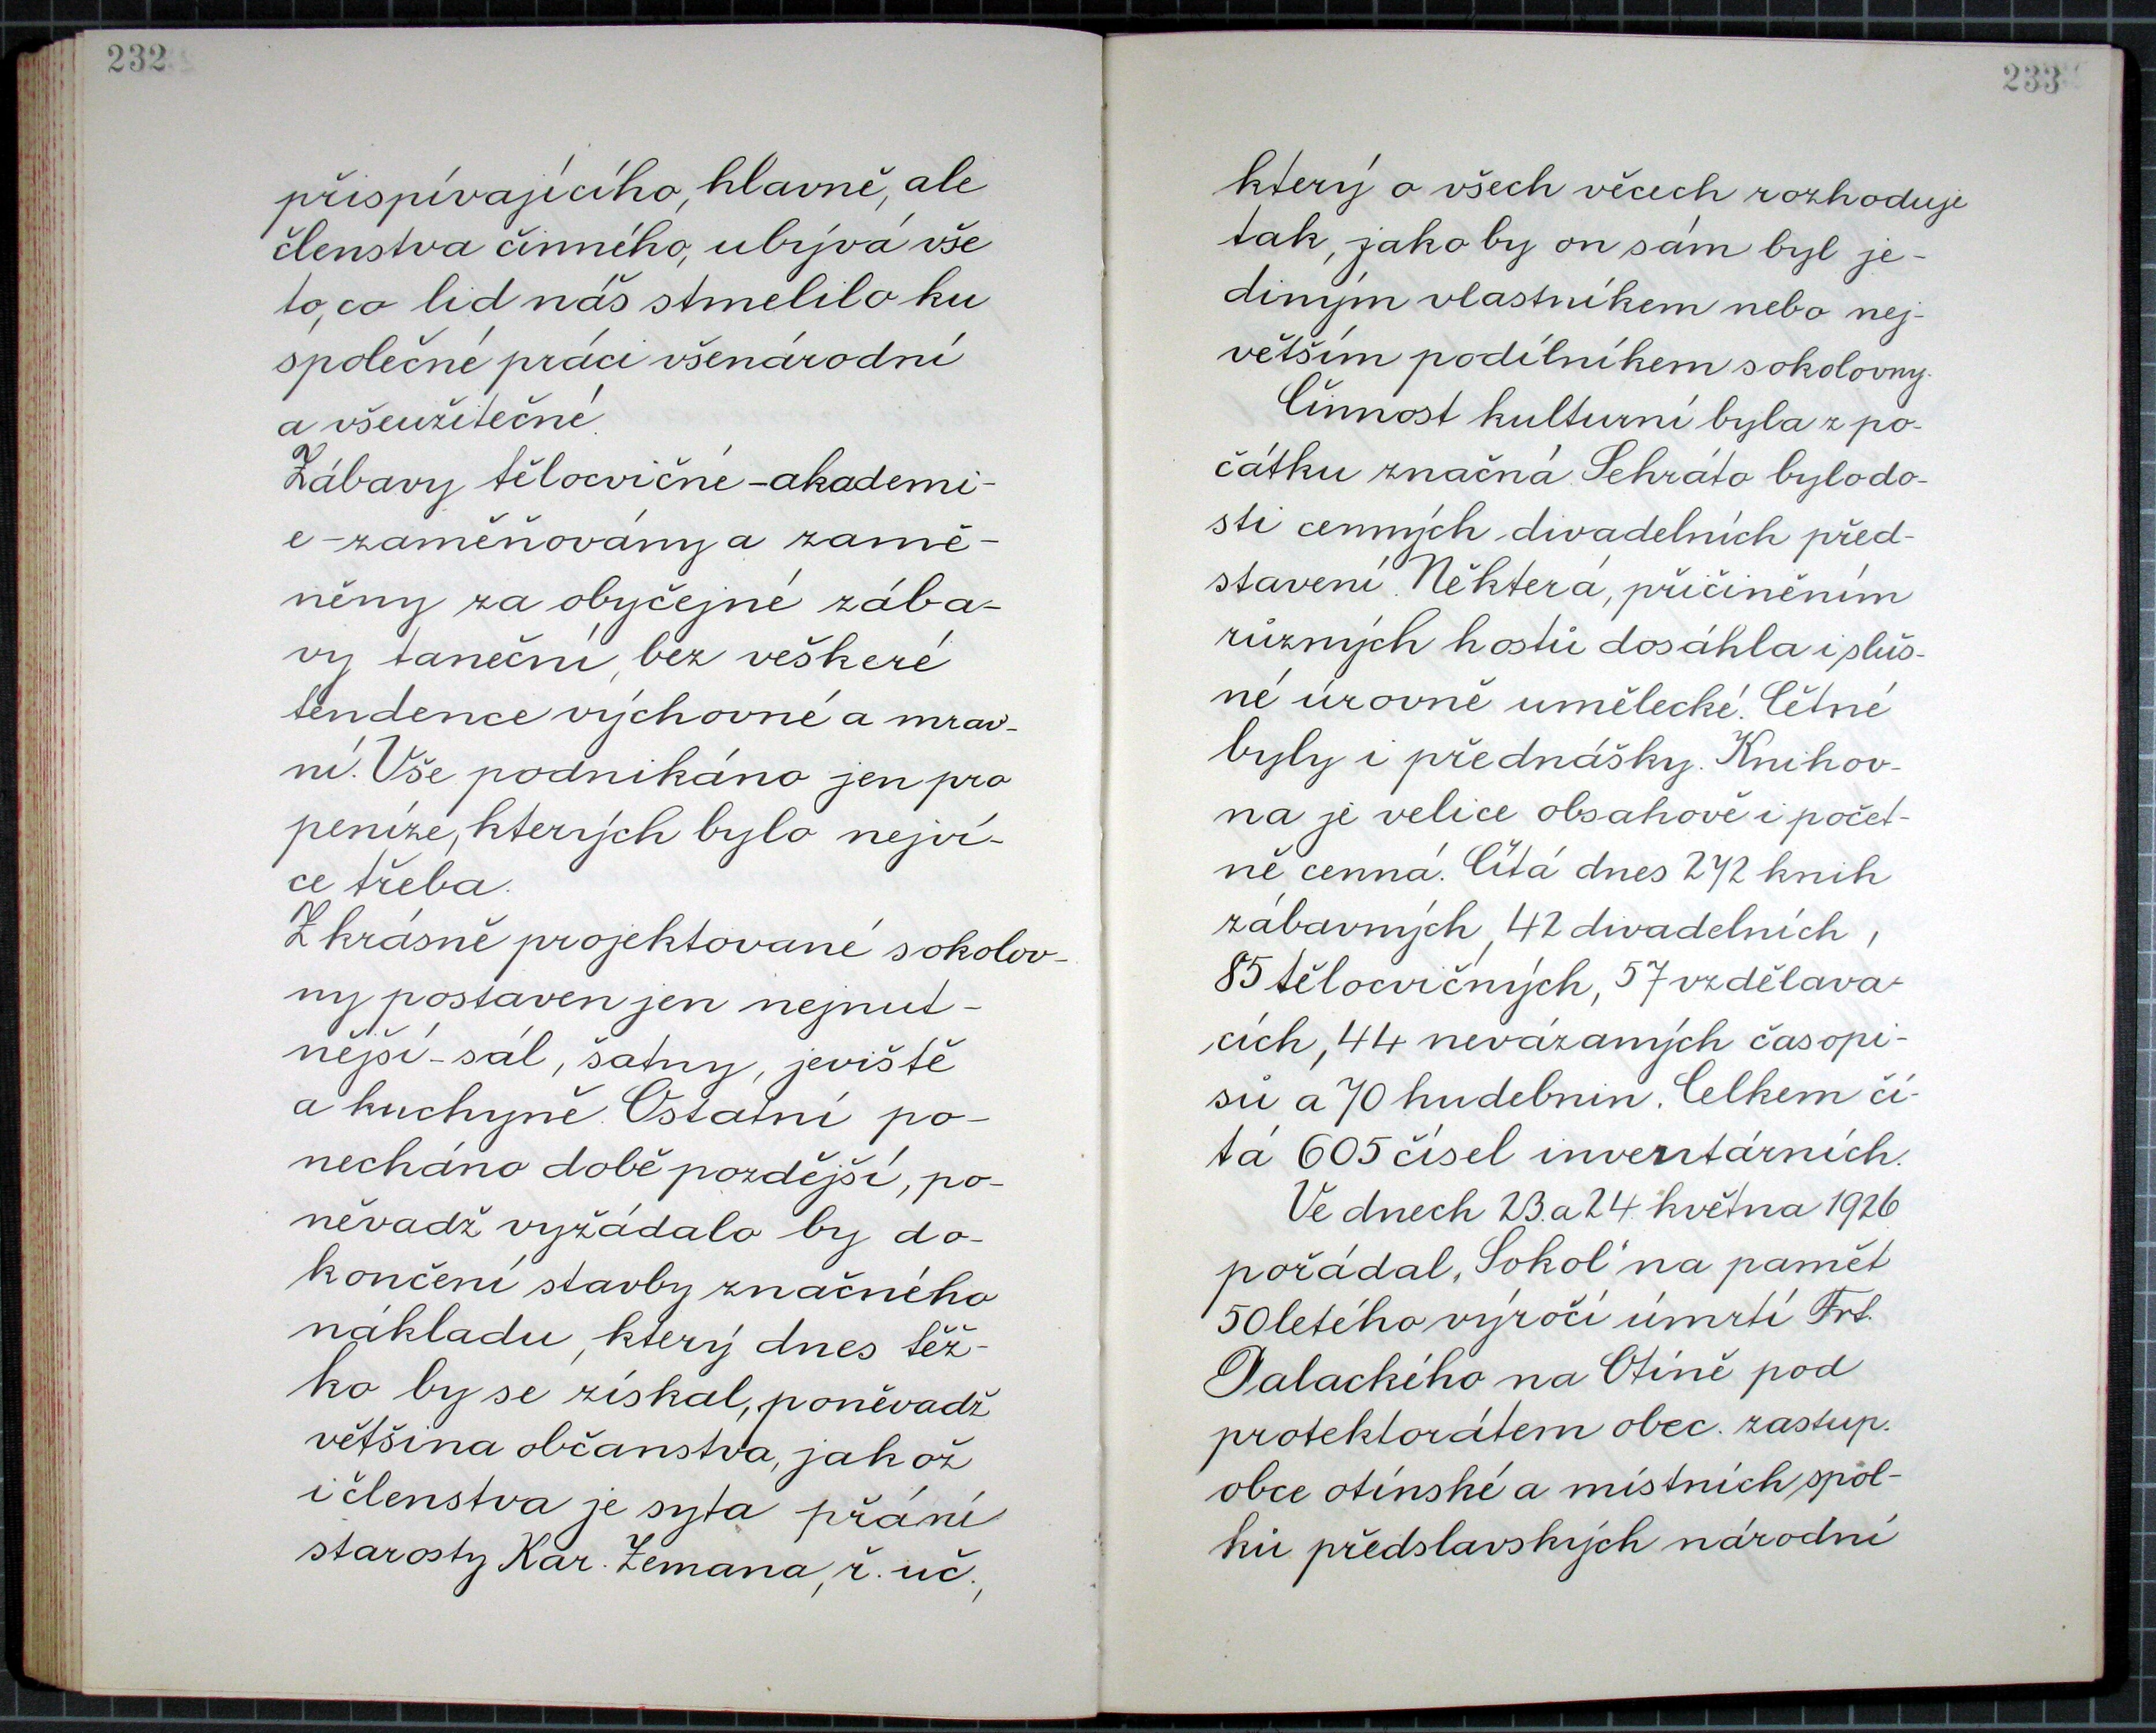 232
přispívajícího, hlavně, ale
členstva činného, ubývá vše
to, co lid náš stmelilo ku
společné práci všenárodní
a všeužitečné.
Zábavy tělocvičné - akademi-
e - zaměňovány a zamě-
něny za obyčejné zába-
vy taneční, bez veškeré
tendence výchovné a mrav-
ní. Vše podnikáno jen pro
peníze, kterých bylo nejví-
ce třeba.
Z krásně projektované sokolov-
ny postaven jen nejnut-
nější - sál, šatny, jeviště
a kuchyně. Ostatní po-
necháno době pozdější, po-
něvadž vyžádalo by do-
končení stavby značného
nákladu, který dnes těž-
ko by se získal, poněvadž
většina občanstva, jakož
i členstva je syta přání
starosty Kar. Zemana, ř. uč.,
233
který o všech věcech rozhoduje
tak, jako by on sám byl je-
diným vlastníkem nebo nej-
větším podílníkem sokolovny.
Činnost kulturní byla z po-
čátku značná. Sehráto bylo do-
sti cenných divadelních před-
stavení. Některá, přičiněním
různých hostů dosáhla i sluš-
né úrovně umělecké. Četné
byly i přednášky. Knihov-
na je velice obsahově i počet-
ně cenná. Čítá dnes 272 knih
zábavných, 42 divadelních,
85 tělocvičných, 57 vzdělava-
cích, 44 nevázaných časopi-
sů a 70 hudebnin. Celkem čí-
tá 605 čísel inventárních.
Ve dnech 23. a 24. května 1926
pořádal „Sokol" na pamět
50letého výročí úmrtí Frt.
Palackého na Otíně pod
protektorátem obec. zastup.
obce otínské a místních spol-
ků předslavských národní